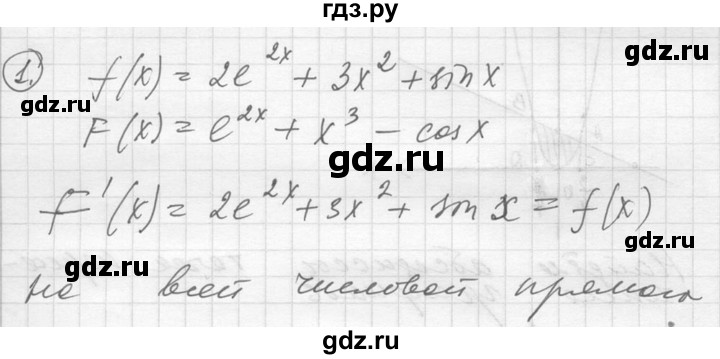 гдз.ру
1. f(x) = 2e^{2x} + 3x^2 + sin x
gdz.ru gdz.ru
F(x) = e^{2x} + x^3 - cos x
gdz.ru
F'(x) = 2e^{2x} + 3x^2 + sin x = f(x)
gdz.ru gdz.ru
на всей числовой прямой
gdz.ru
gdz.ru gdz.ru